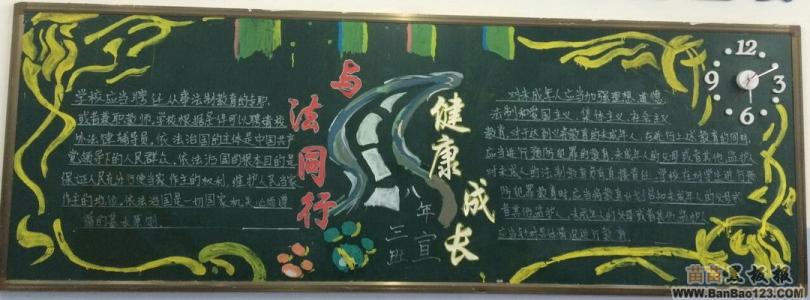 学校应当聘任从事法制教育的专职
或者兼职教师，学校根据条件可以聘请校
外法律辅导员，依法治国的主体是中国共产
党领导下的人民群众，依法治国的根本目的是
保证人民充分行使当家作主的权利，维护人民当家
作主的地位，依法治国是一切国家机关必须遵
循的基本原则
与
法同行
健康成长
八年
三班
宣
对未成年人应当加强理想、道德、
法制和爱国主义、集体主义、社会主义
教育，对于达到义务教育的未成年人，在进行上述教育的同时，
应当进行预防犯罪的教育，未成年人的父母或者其他监护人
对未成年人的法制教育负有直接责任。学校在对学生进行预
防犯罪教育时，应当将教育计划告知未成年人的父母或
者其他监护人，未成年人的父母或者其他监护人
应当
进行教育
12
3
6
9
苗苗黑板报
www.BanBao123.com